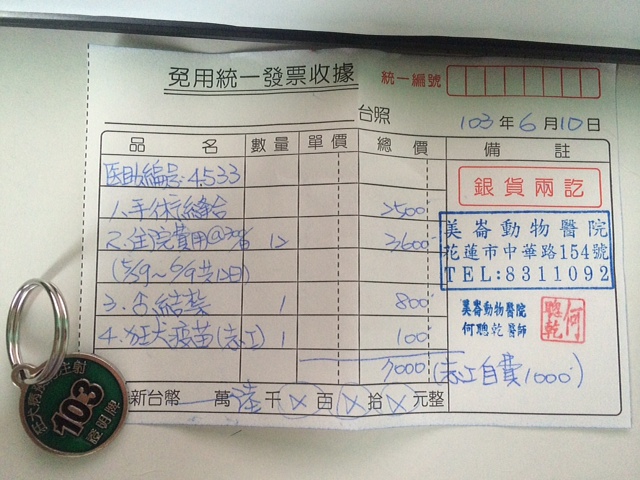 免用統一發票收據
統一編號
台照
103年6月10日
品名 數量 單價 總價 備註
医助編号:4533
1.手術縫合 2500
2.住院費用@300/日 12 3,600
(5/29~6/9共12日)
3. 結紮 1 800
4.狂犬疫苗(志工) 1 100
7000 (志工自費1000)
新台幣 萬陸千⊗百⊗拾⊗元整
銀貨兩訖
美崙動物醫院
花蓮市中華路154號
TEL:8311092
美崙動物醫院
何聰乾醫師
何聰乾
103
證明牌